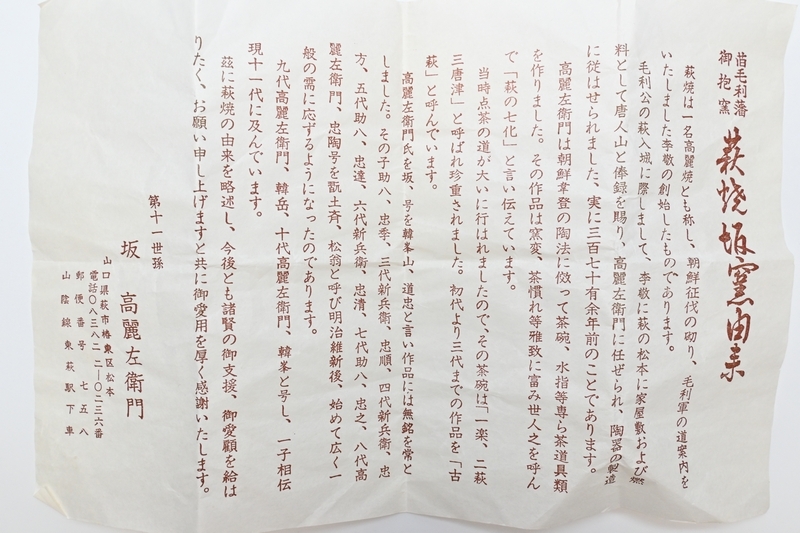 旧毛利藩
御抱窯
萩焼坂窯由来
萩焼は一名高麗焼とも称し、朝鮮征伐の砌り、毛利軍の道案内を
いたしました李敬の創始したものであります。
毛利公の萩入城に際しまして、李敬に萩の松本に家屋敷および燃
料として唐人山と俸録を賜り、高麗左衛門に任ぜられ、陶器の製造
に従はせられました、実に三百七十有余年前のことであります。
高麗左衛門は朝鮮韋登の陶法に倣って茶碗、水指等専ら茶道具類
を作りました。その作品は窯変、茶慣れ等雅致に富み世人之を呼ん
で「萩の七化」と言い伝えています。
当時点茶の道が大いに行はれましたので、その茶碗は「一楽、二萩
三唐津」と呼ばれ珍重されました。初代より三代までの作品を「古
萩」と呼んでいます。
高麗左衛門氏を坂、号を韓峯山、道忠と言い作品には無銘を常と
しました。その子助八、忠季、三代新兵衛、忠順、四代新兵衛、忠
方、五代助八、忠達、六代新兵衛、忠清、七代助八、忠之、八代高
麗左衛門、忠陶号を翫土斉、松翁と呼び明治維新後、始めて広く一
般の需に応ずるようになったのであります。
九代高麗左衛門、韓岳、十代高麗左衛門、韓峯と号し、一子相伝
現十一代に及んでいます。
茲に萩焼の由来を略述し、今後とも諸賢の御支援、御愛顧を給は
りたく、お願い申し上げますと共に御愛用を厚く感謝いたします。
第十一世孫
坂 高麗左衛門
山口県萩市椿東区松本
電話〇八三八二 二―〇二三六番
郵便番号 七五八
山陰線東萩駅下車